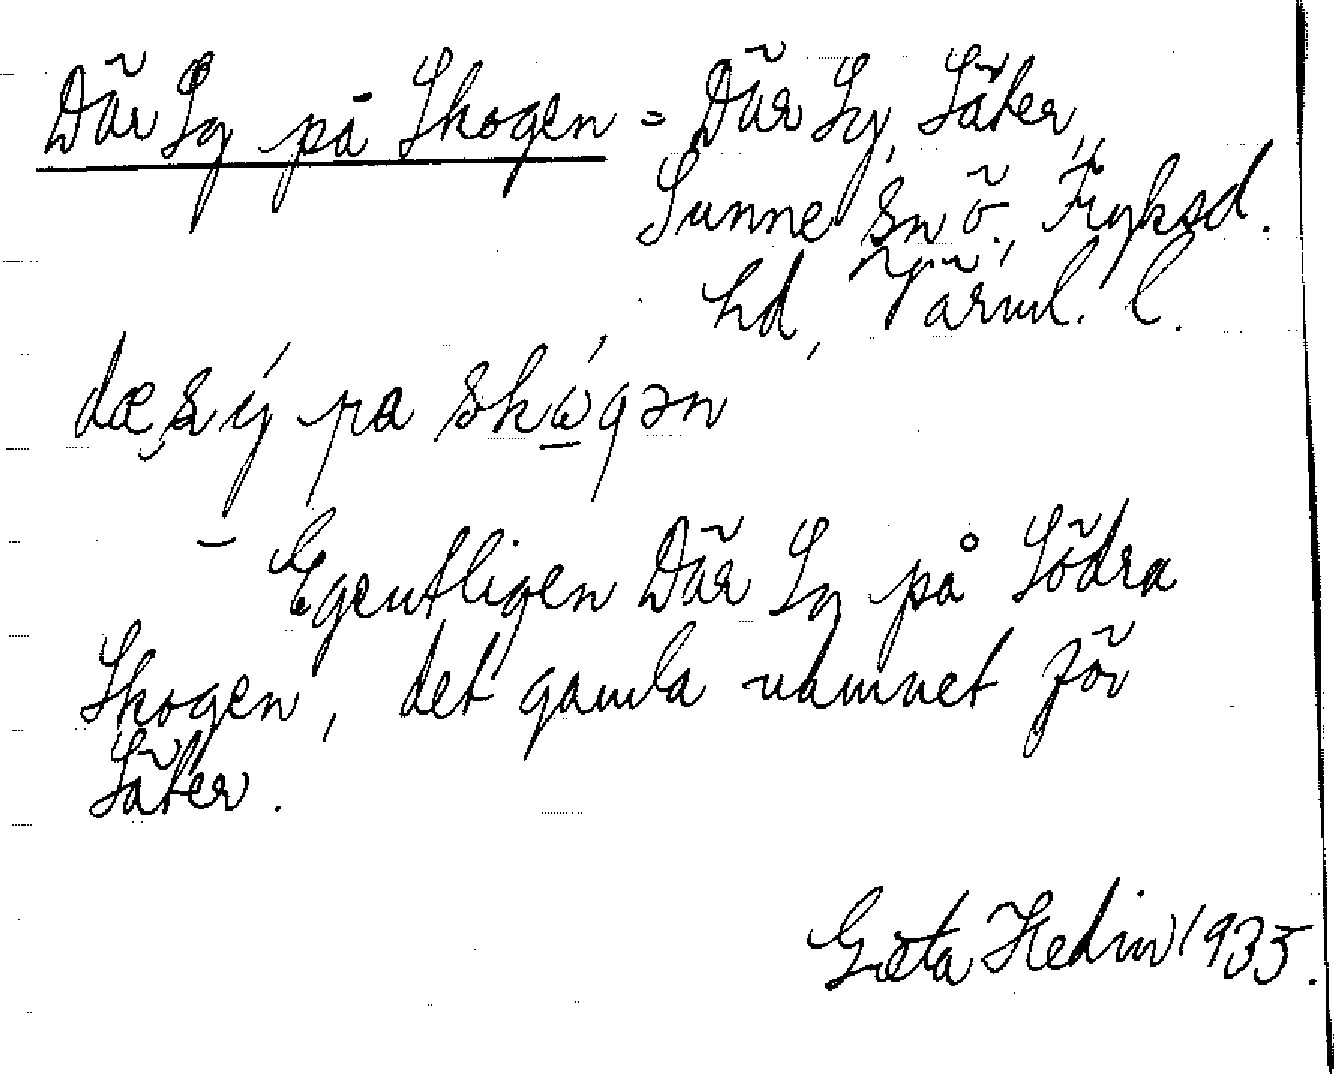 Där Sy på Skogen = Där Sy, Säter,
Sunne sn ö., Fryksd.
hd, Värml. l.
dæ̨ s ý pa skógən
– Egentligen Där Sy på Södra
Skogen, det gamla namnet för
Säter.
Greta Hedin 1935.